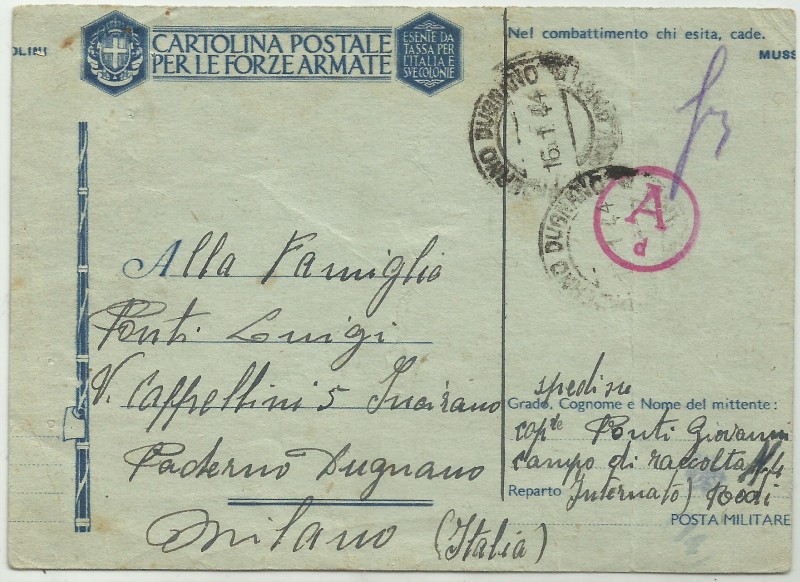 OLINI
CARTOLINA POSTALE
PER LE FORZE ARMATE
ESENTE DA
TASSA PER
L'ITALIA E
SVE COLONIE
Nel combattimento chi esita, cade.
MUSS
DUGNANO
16.1.44
DUGNANO
44
A
d
Alla Famiglia
Ponti Luigi
V. Cappellini 5
Paderno Dugnano
Milano (Italia)
Grado, Cognome e Nome del mittente:
Ponti Giovanni
campo di raccolta
Reparto Internato) Rodi
POSTA MILITARE